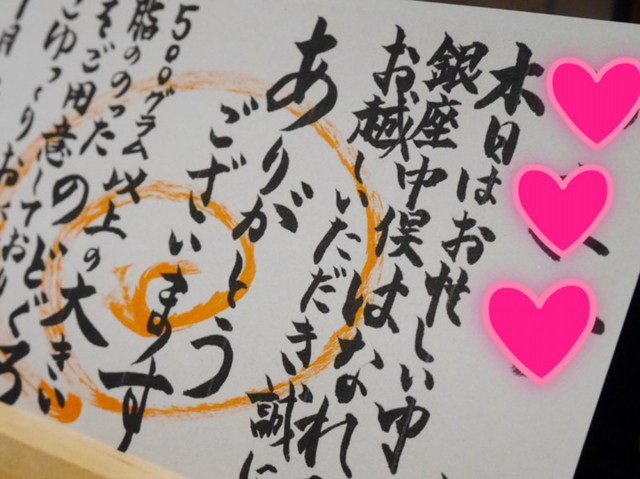 本日はお忙しい中
銀座中俣はなれ
お越しいただき誠に
ありがとう
ございます
500グラム以上の大きい
脂ののったのどぐろ
をご用意しており
ごゆっくりお